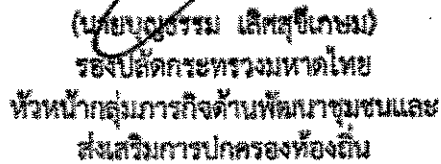 (นายบุญธรรม เลิศสุขีเกษม)
รองปลัดกระทรวงมหาดไทย
หัวหน้ากลุ่มภารกิจด้านพัฒนาชุมชนและ
ส่งเสริมการปกครองท้องถิ่น